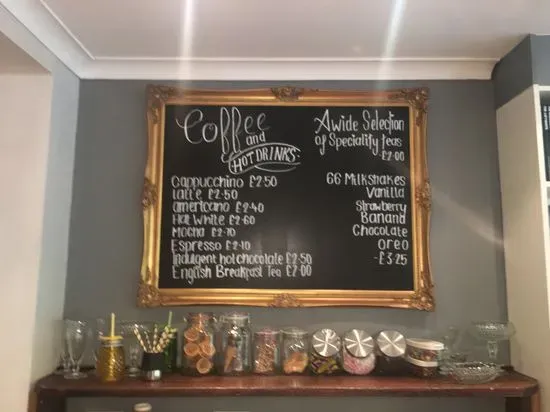 Coffee
and
HOT DRINKS:
Cappucchino £2·50
latte £2·50
americano £2·40
Flat White £2·60
Mocha £2·70
Espresso £2·10
Indulgent hot chocolate £2·50
English Breakfast Tea £2·00
A wide Selection
of Speciality teas
£2·00
GG Milkshakes
Vanilla
Strawberry
Banana
Chocolate
oreo
-£3·25